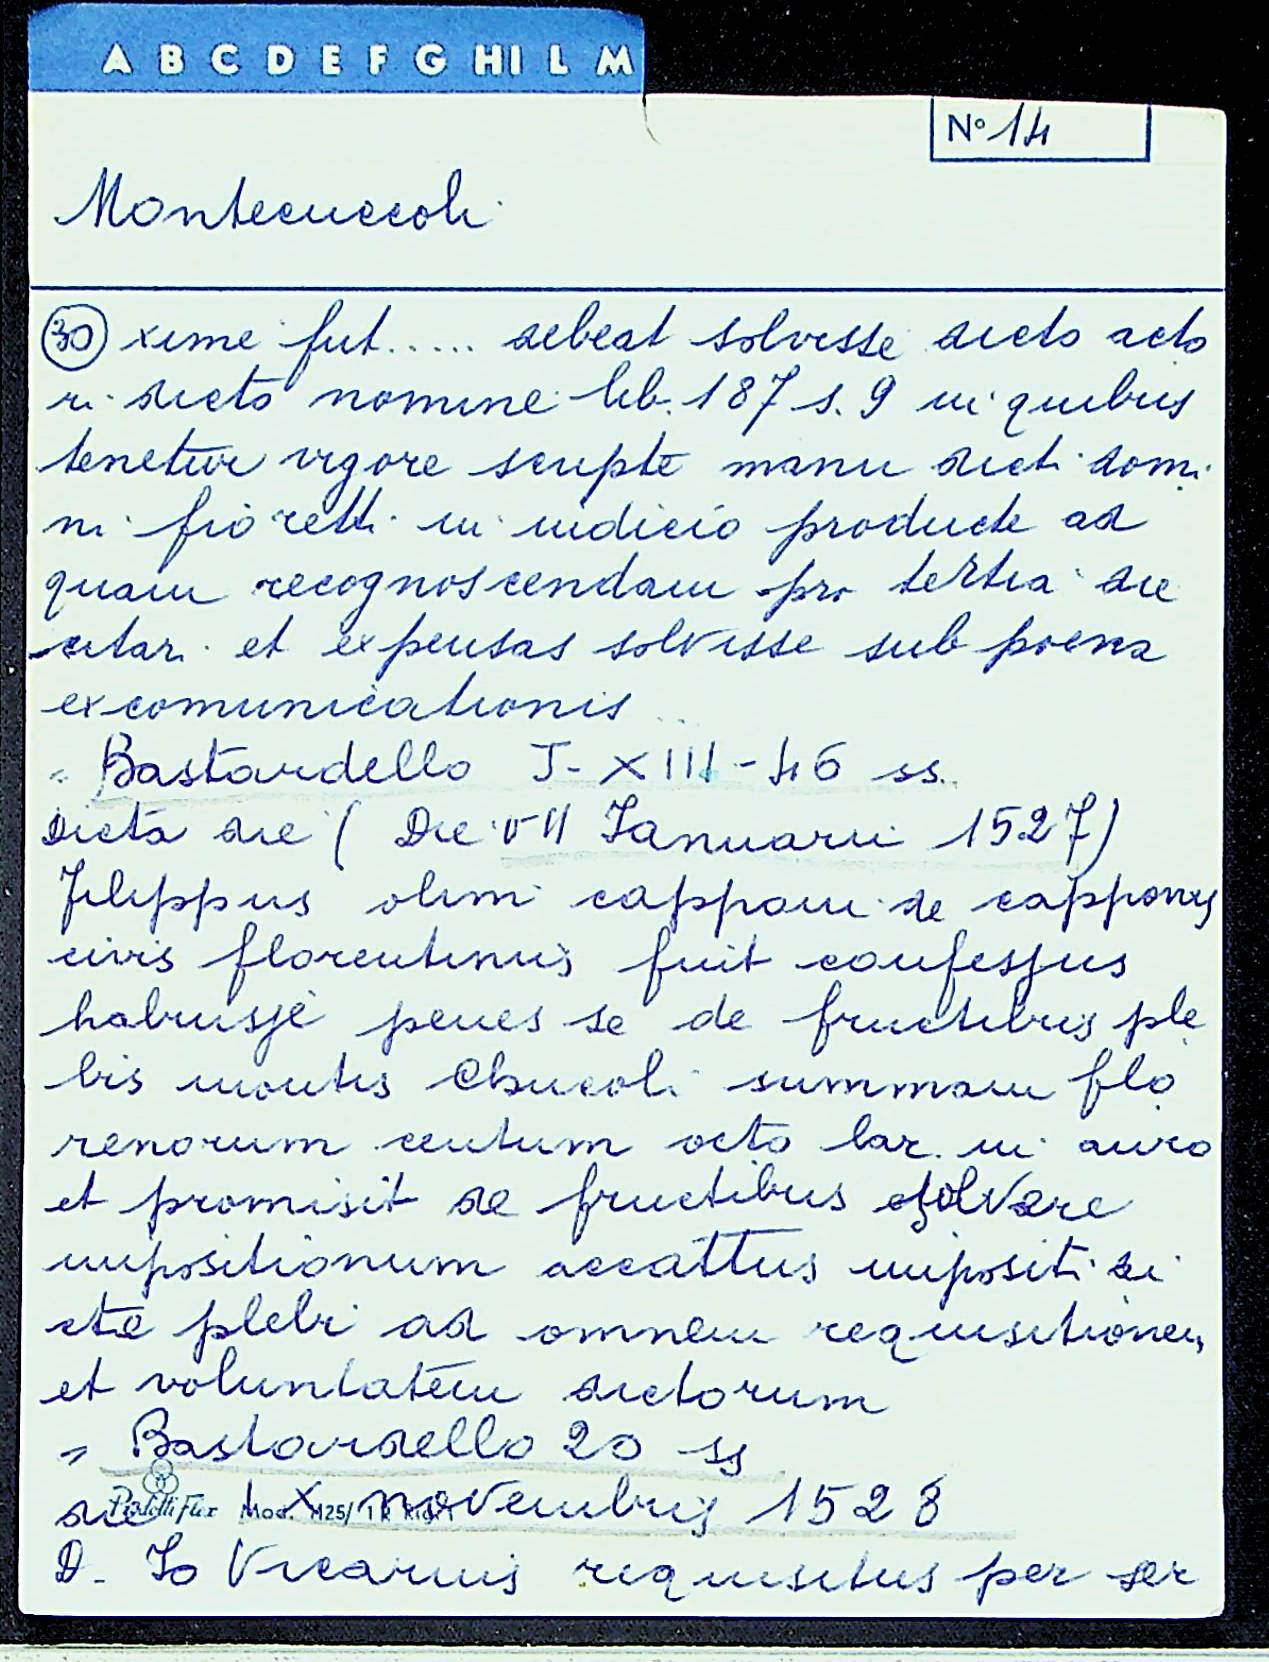 A B C D E F G HI L M
N° 14
Montecuccoli
30 xime fut..... debeat solvisse dicto acto
ri dicto nomine lib. 187 s. 9 in quibus
tenetur vigore scripte manu dicti domi
ni fioretti in iudicio producte ad
quam recognoscendam pro tertia die
citari et expensas solvisse sub poena
excomunicationis
" Bastardello J- XIII - 46 ss.
Dicta die ( Die VII Ianuarii 1527)
Filippus olim capponi de capponis
civis florentinus fuit confessus
habuisse penes se de fructibus ple
bis montis Chucoli summam flo
renorum centum octo lar. in auro
et promisit de fructibus solvere
impositionum accattus impositi di
cte plebi ad omnem requisitionem
et voluntatem dictorum
" Bastardello 20 ss
die IX novembris 1528
Mod. M25/
D. Io Vicarius requisitus per ser